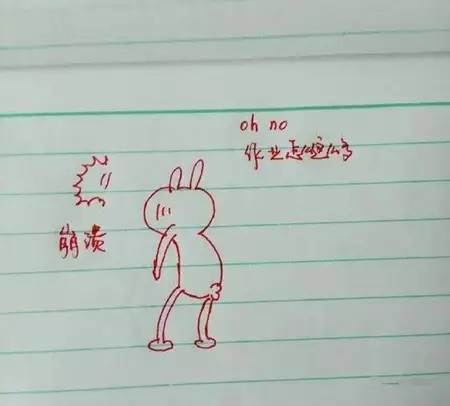 oh no
作业怎么这么多
崩溃